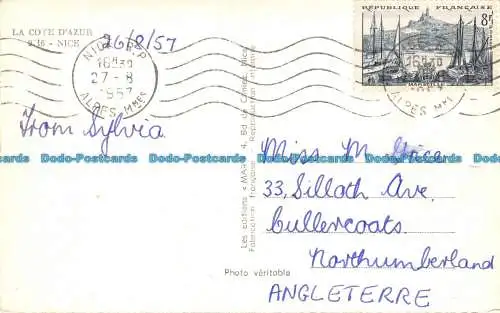 LA COTE D'AZUR
9.16 - NICE
26/8/57
NICE R.P
16H30
27-8
1957
ALPES Mmes
REPUBLIQUE FRANÇAISE
8F
From Sylvia
Les éditions «MAR» 4, Bd de Cimiez, Nice
Fabrication française - Reproduction interdite
Miss M. Grice
33, Silloth Ave.
Cullercoats.
Northumberland
ANGLETERRE
Photo véritable
Dodo-Postcards Dodo-Postcards Dodo-Postcards Dodo-Postcards